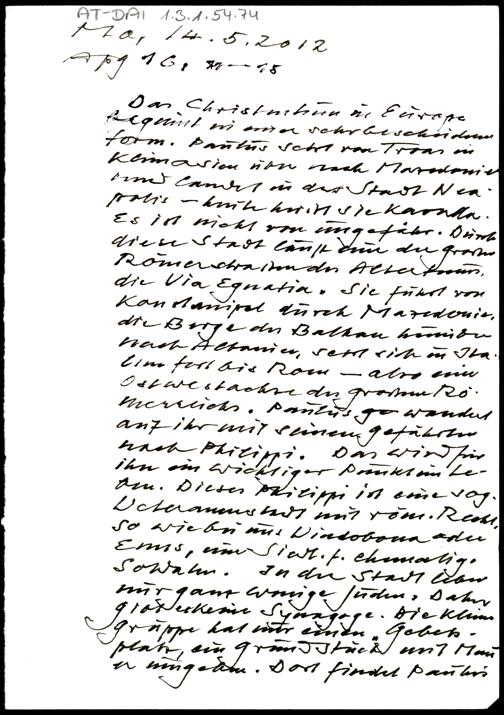 AT-DAI 1.3.1.54.74
Mo, 14.5.2012
Apg 16, 11-15
Das Christentum in Europa
beginnt in einer sehr bescheidenen
Form. Paulus setzt von Troas in
Kleinasien über nach Mazedonien
und landet in der Stadt Nea-
polis – heute heißt sie Kavalla.
Es ist nicht von ungefähr. Durch
diese Stadt läuft eine der großen
Römerstraßen des Altertums,
die Via Egnatia. Sie führt von
Konstantinopel durch Mazedonien,
die Berge des Balkan hinüber
nach Albanien, setzt sich in Ita-
lien fort bis Rom – also eine
Ostwestachse des großen Rö-
merreichs. Paulus wandert
auf ihr mit seinen Gefährten
nach Philippi. Das wird für
ihn ein wichtiger Punkt im Le-
ben. Dieses Philippi ist eine sog.
Veteranenstadt mit röm. Recht,
so wie bei uns Vindobona oder
Enns, eine Siedl. f. ehemalige
Soldaten. In der Stadt leben
nur ganz wenige Juden. Daher
gibt es keine Synagoge. Die kleine
Gruppe hat nur einen „Gebets-
platz, ein Grundstück mit Mau-
er umgeben. Dort findet Paulus